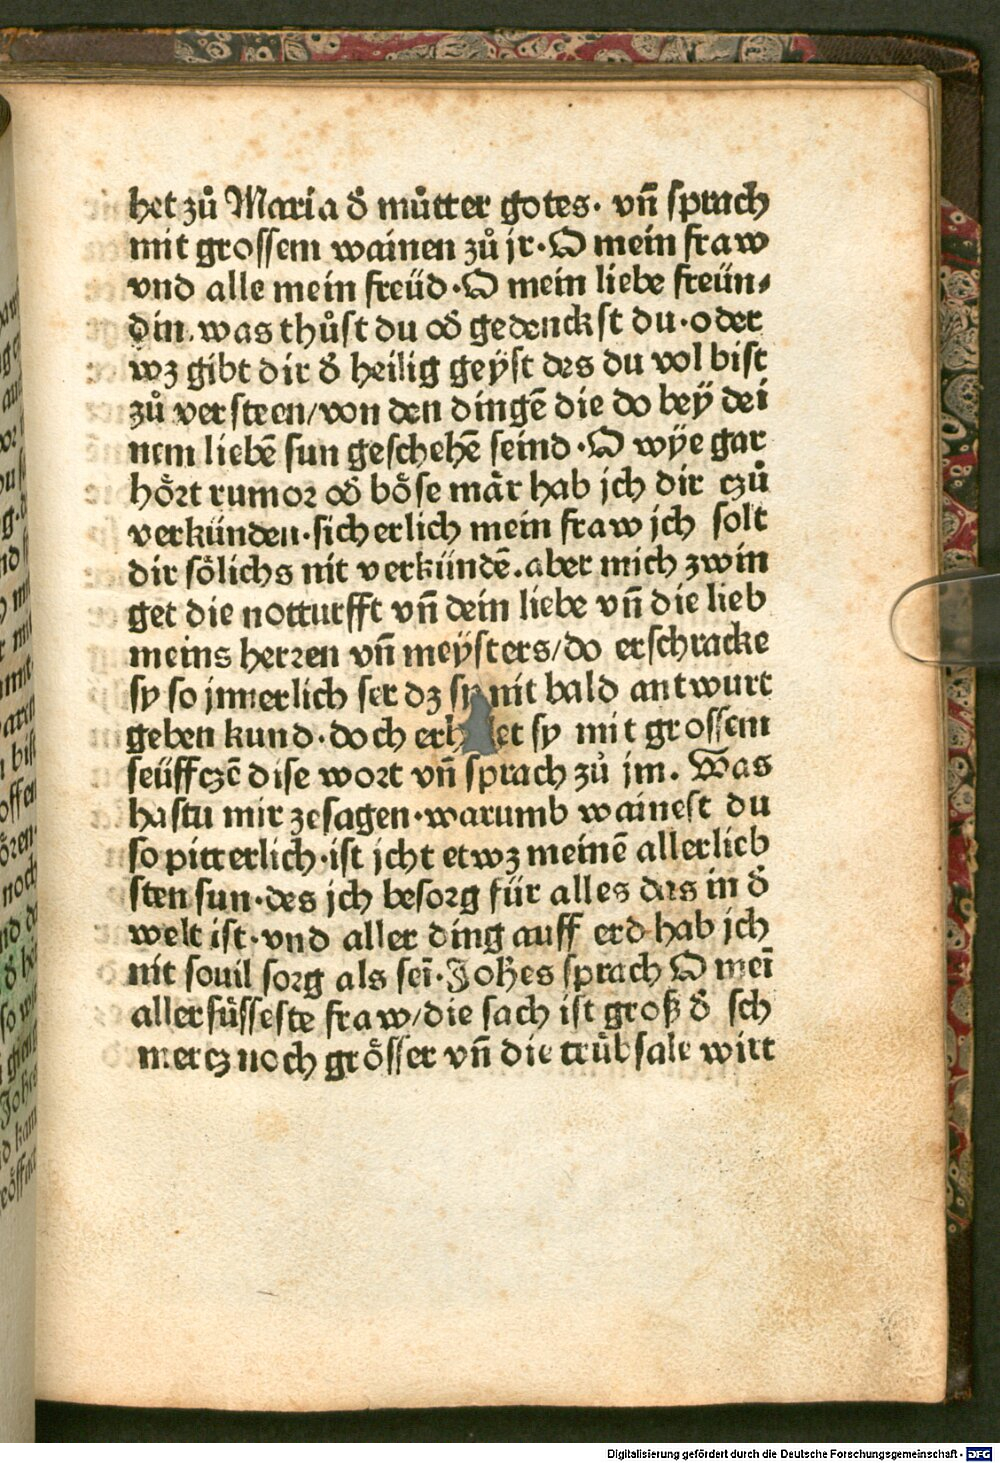 het zů Maria đ můtter gotes· vñ sprach
mit grossem wainen zů jr·O mein fraw
vnd alle mein freüd·O mein liebe freün⸗
din.was thůst du ođ gedenckst du·oder
wz gibt dir đ heilig geÿst des du vol bist
zů versteen/von den dingē die do beÿ dei
nem liebē sun geschehē seind·O wÿe gar
hoͤrt rumor ođ boͤse maͤr hab jch dir czů
verkünden·sicherlich mein fraw jch solt
dir soͤlichs nit verkündē.aber mich zwin
get die notturfft vñ dein liebe vñ die lieb
meins herren vñ meÿsters/do erschracke
sy so jnnerlich ser dz sy nit bald antwurt
geben kund·doch mit grossem
seüffczē dise wort vñ sprach zů jm. Was
hastu mir zesagen·warumb wainest du
so pitterlich·ist jcht etwz meinē allerlieb
sten sun·des jch besorg für alles das in đ
welt ist·vnd aller ding auff erd hab jch
nit souil sorg als seī·Joħes sprach O meī
allersuͤsseste fraw/die sach ist groß đ sch
mercz noch groͤsser vñ die truͤbsale wirt
Digitalisierung gefördert durch die Deutsche Forschungsgemeinschaft - DFG